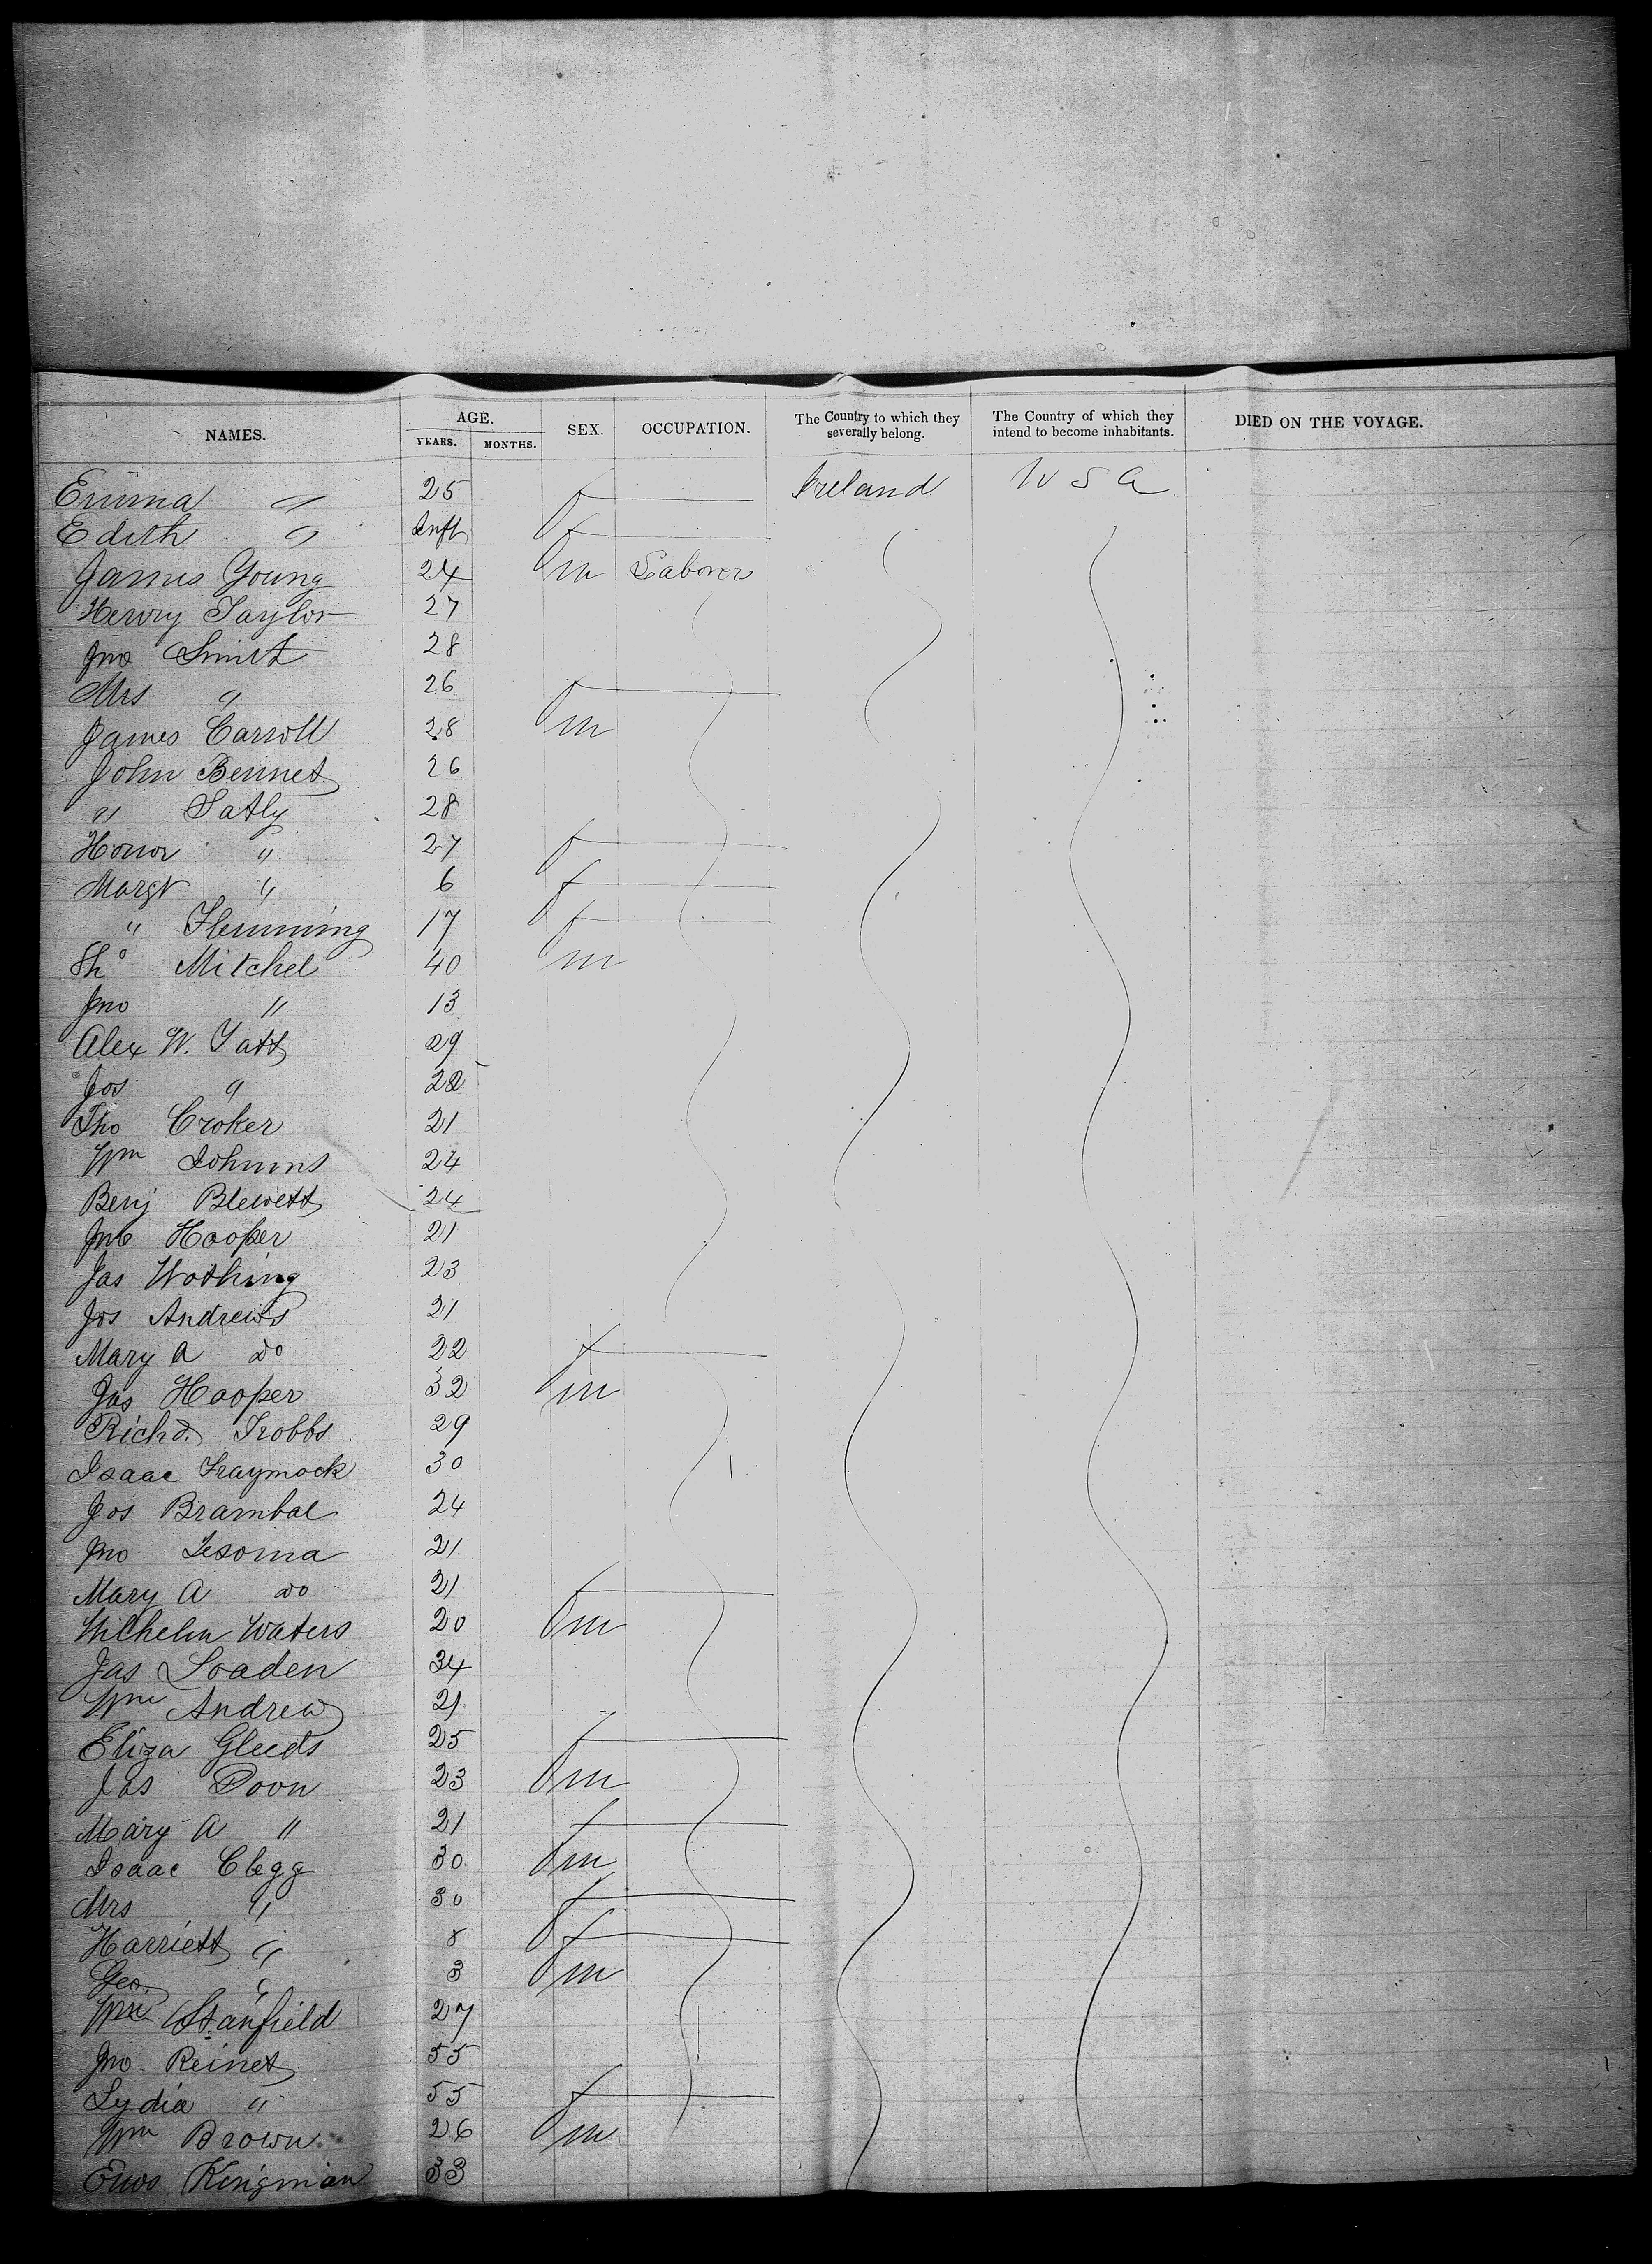 NAMES. AGE. YEARS. MONTHS. SEX. OCCUPATION. The Country to which they severally belong. The Country of which they intend to become inhabitants. DIED ON THE VOYAGE.
Emma " 25 f Ireland U S A
Edith " Inft f
James Young 24 m Laborer
Henry Taylor 27
Jno Smith 28
Mrs " 26 f
James Carroll 28 m
John Bennet 26
" Satly 28
Honor " 27 f
Margt " 6 f
" Flemming 17 f
Tho Mitchel 40 m
Jno " 13
Alex W. Tatt 29
Jos " 22
Tho Croker 21
Wm Johnms 24
Benj Blewett 24
Jno Hooper 21
Jas Wothing 23
Jos Andrews 21
Mary A do 22 f
Jas Hooper 32 m
Richd. Trobbs 29
Isaac Fraymock 30
Jos Brambal 24
Jno Lesoma 21
Mary A do 21 f
Wilhelm Waters 20 m
Jas Loaden 34
Wm Andrew 21
Eliza Gleeds 25 f
Jas Doon 23 m
Mary A " 21 f
Isaac Clegg 30 m
Mrs " 30 f
Harriett " 8 f
Geo " 3 m
Wm Stanfield 27
Jno. Reinet 55
Lydia " 55 f
Wm Brown 26 m
Kingman 33